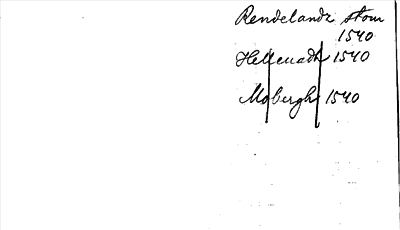 Rendelandz stom
1540
Hellevadh 1540
Moberghe 1540